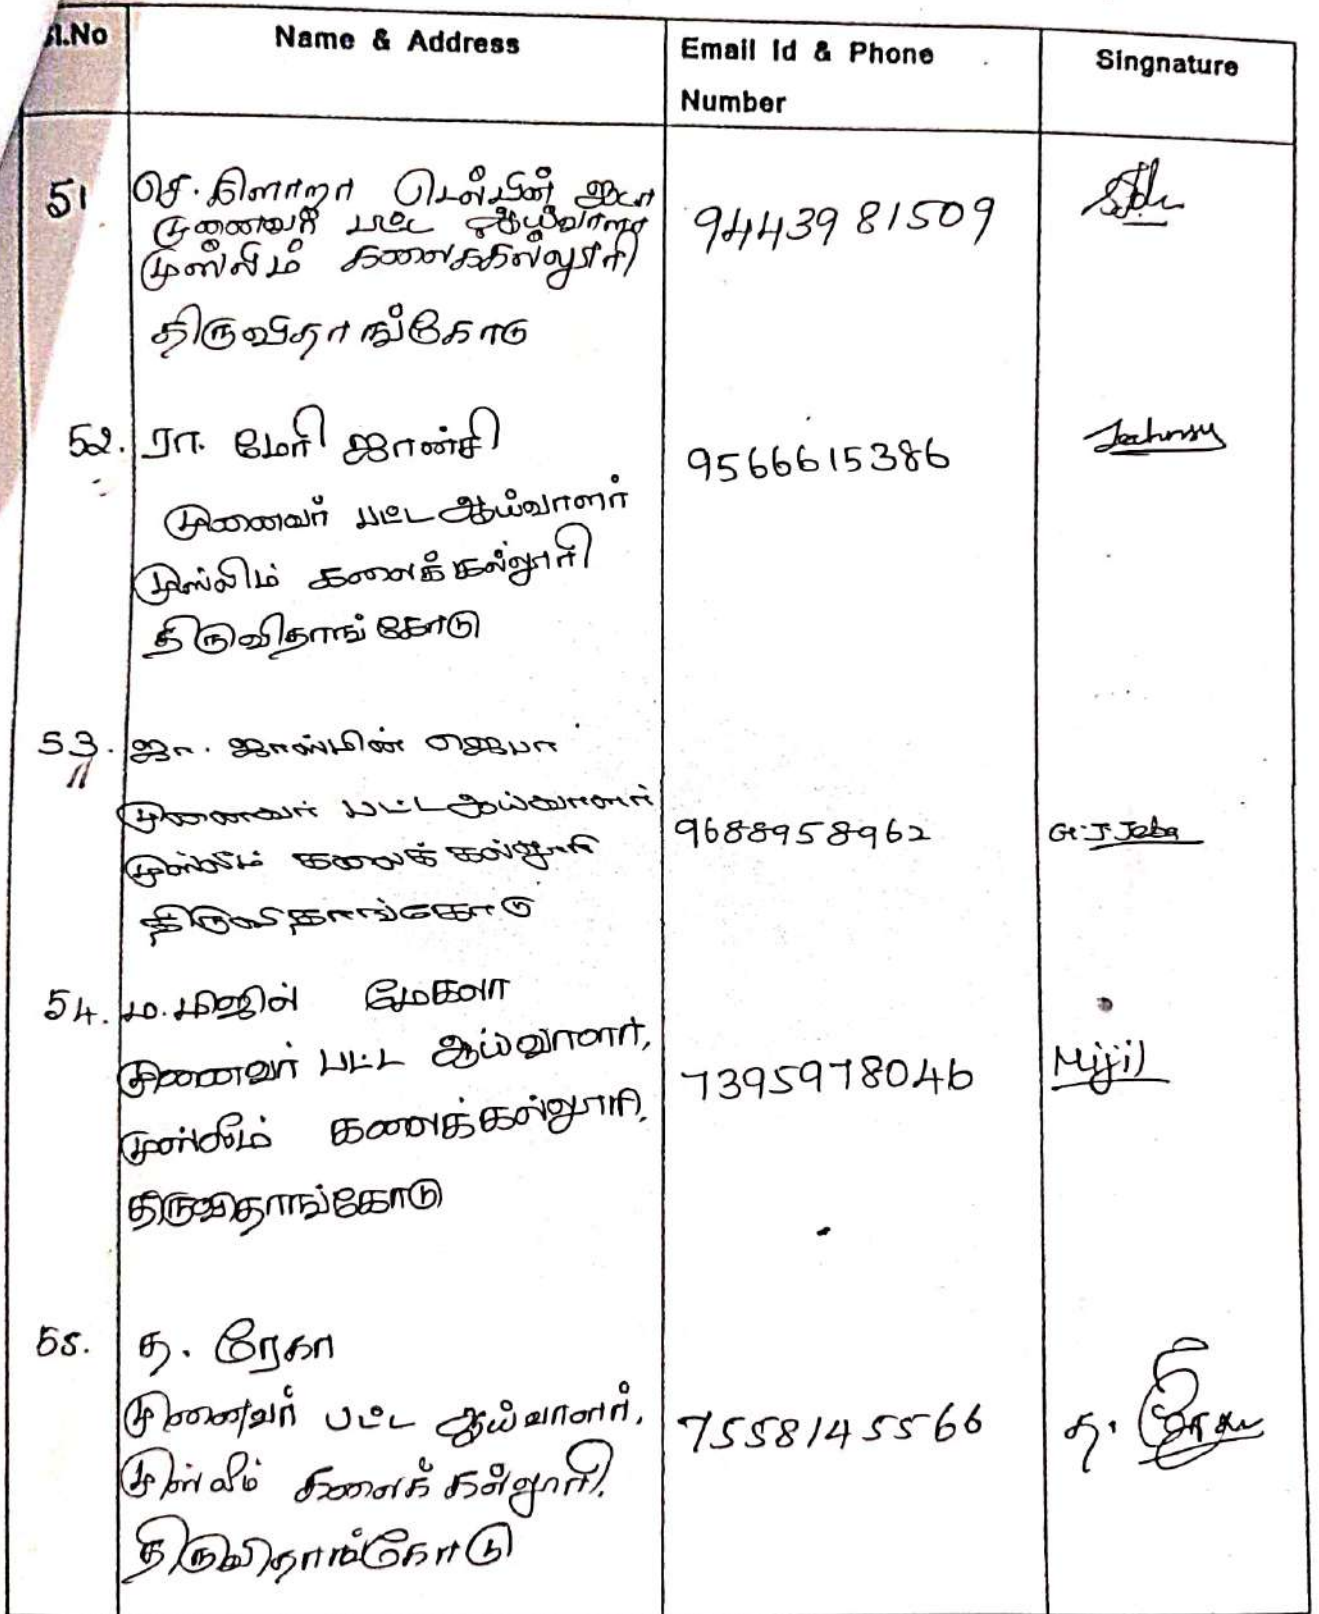 Sl.No Name & Address Email Id & Phone Number Singnature
51 செ. கிளாறா டெல்பின்
முனைவர் பட்ட ஆய்வாளர்
முஸ்லிம் கலைக்கல்லூரி
திருவிதாங்கோடு
9443981509
52. ரா. மேரி ஜான்சி
முனைவர் பட்ட ஆய்வாளர்
முஸ்லிம் கலைக் கல்லூரி
திருவிதாங்கோடு
9566615386
53. ஜா. ஜாஸ்மின் ஜெபா
முனைவர் பட்ட ஆய்வாளர்
முஸ்லிம் கலைக் கல்லூரி
திருவிதாங்கோடு
9688958962
G. J Jeba
54. ம. மிஜில் மேகலா
முனைவர் பட்ட ஆய்வாளர்,
முஸ்லிம் கலைக்கல்லூரி,
திருவிதாங்கோடு
7395978046
Mijil
55. த. ரேகா
முனைவர் பட்ட ஆய்வாளர்,
முஸ்லிம் கலைக் கல்லூரி,
திருவிதாங்கோடு
7558145566
த. ரேகா